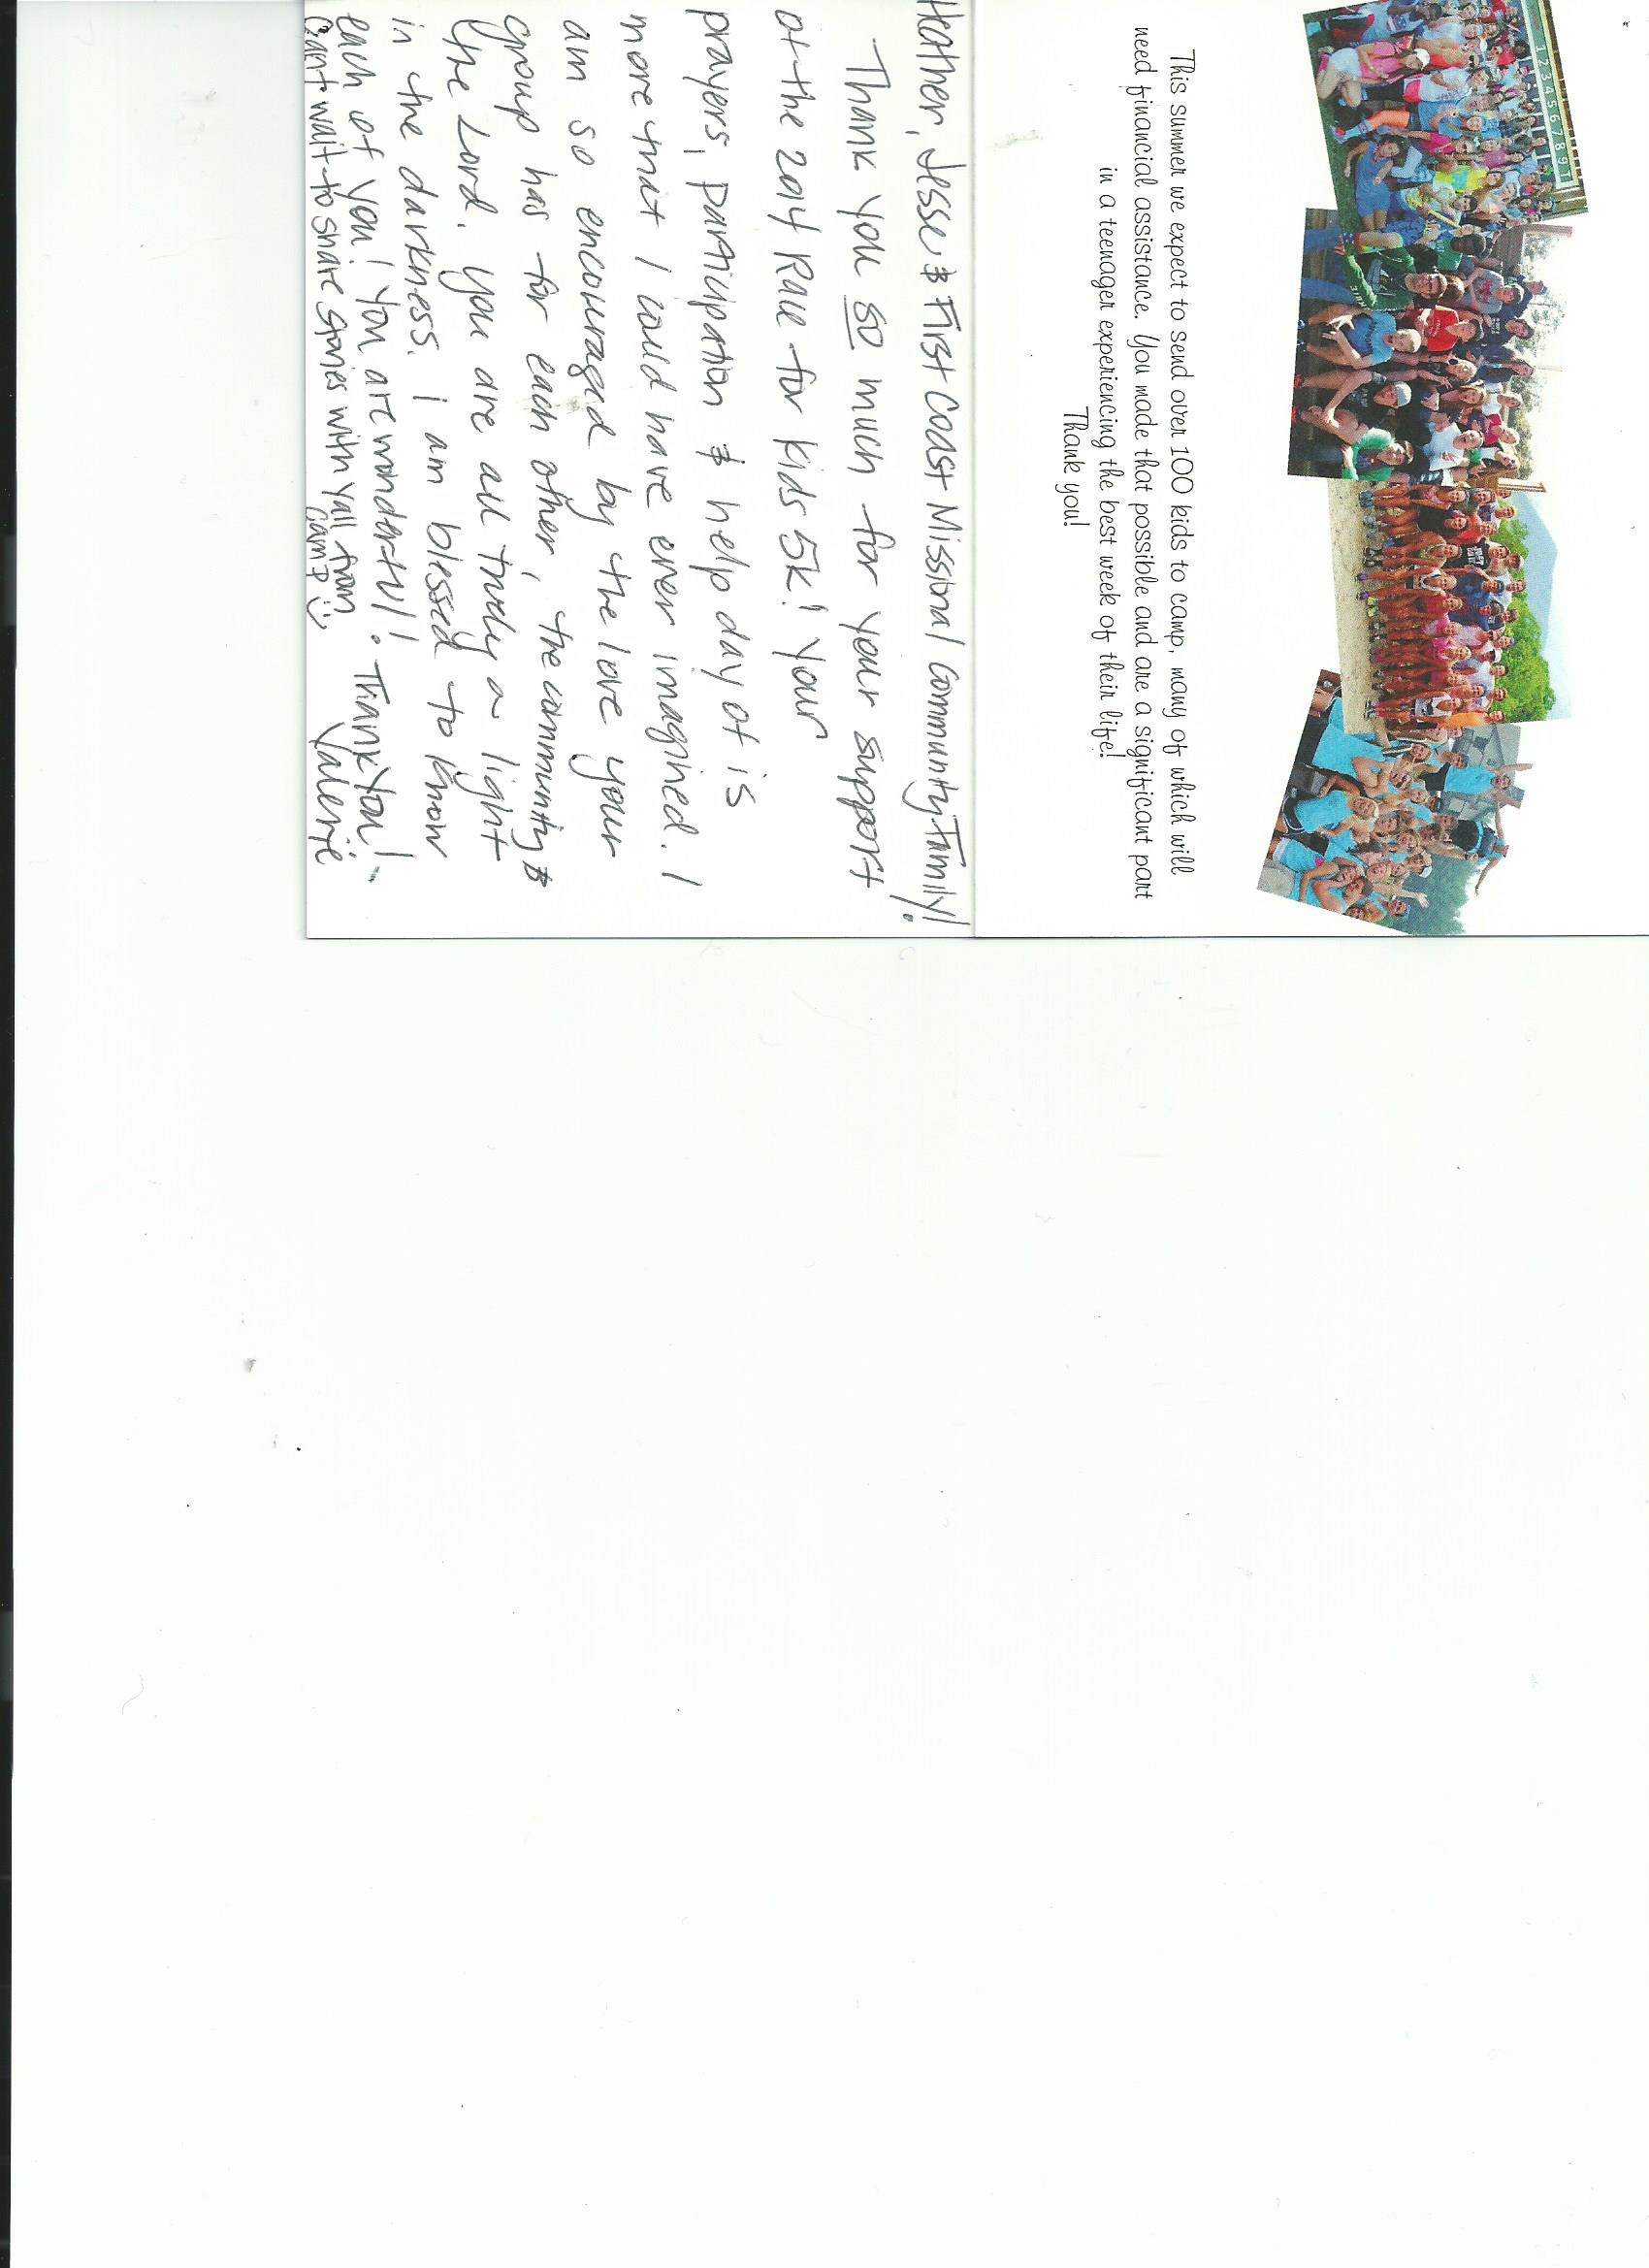 This summer we expect to send over 100 kids to camp, many of which will
need financial assistance. You made that possible and are a significant part
in a teenager experiencing the best week of their life!
Thank you!
Heather, Jesse & First Coast Missional Community Family!
Thank you so much for your support
of the 2014 Race for Kids 5k! Your
prayers, participation & help day of is
more that I could have ever imagined. I
am so encouraged by the love your
group has for each other, the community &
the Lord. You are all truly a light
in the darkness. I am blessed to know
each of you! You are wonderful! Thank You!
Can't wait to share stories with yall from camp :)
Valerie